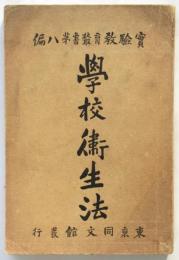 實驗教育叢書第八偏
學校衞生法
東京同文館發行